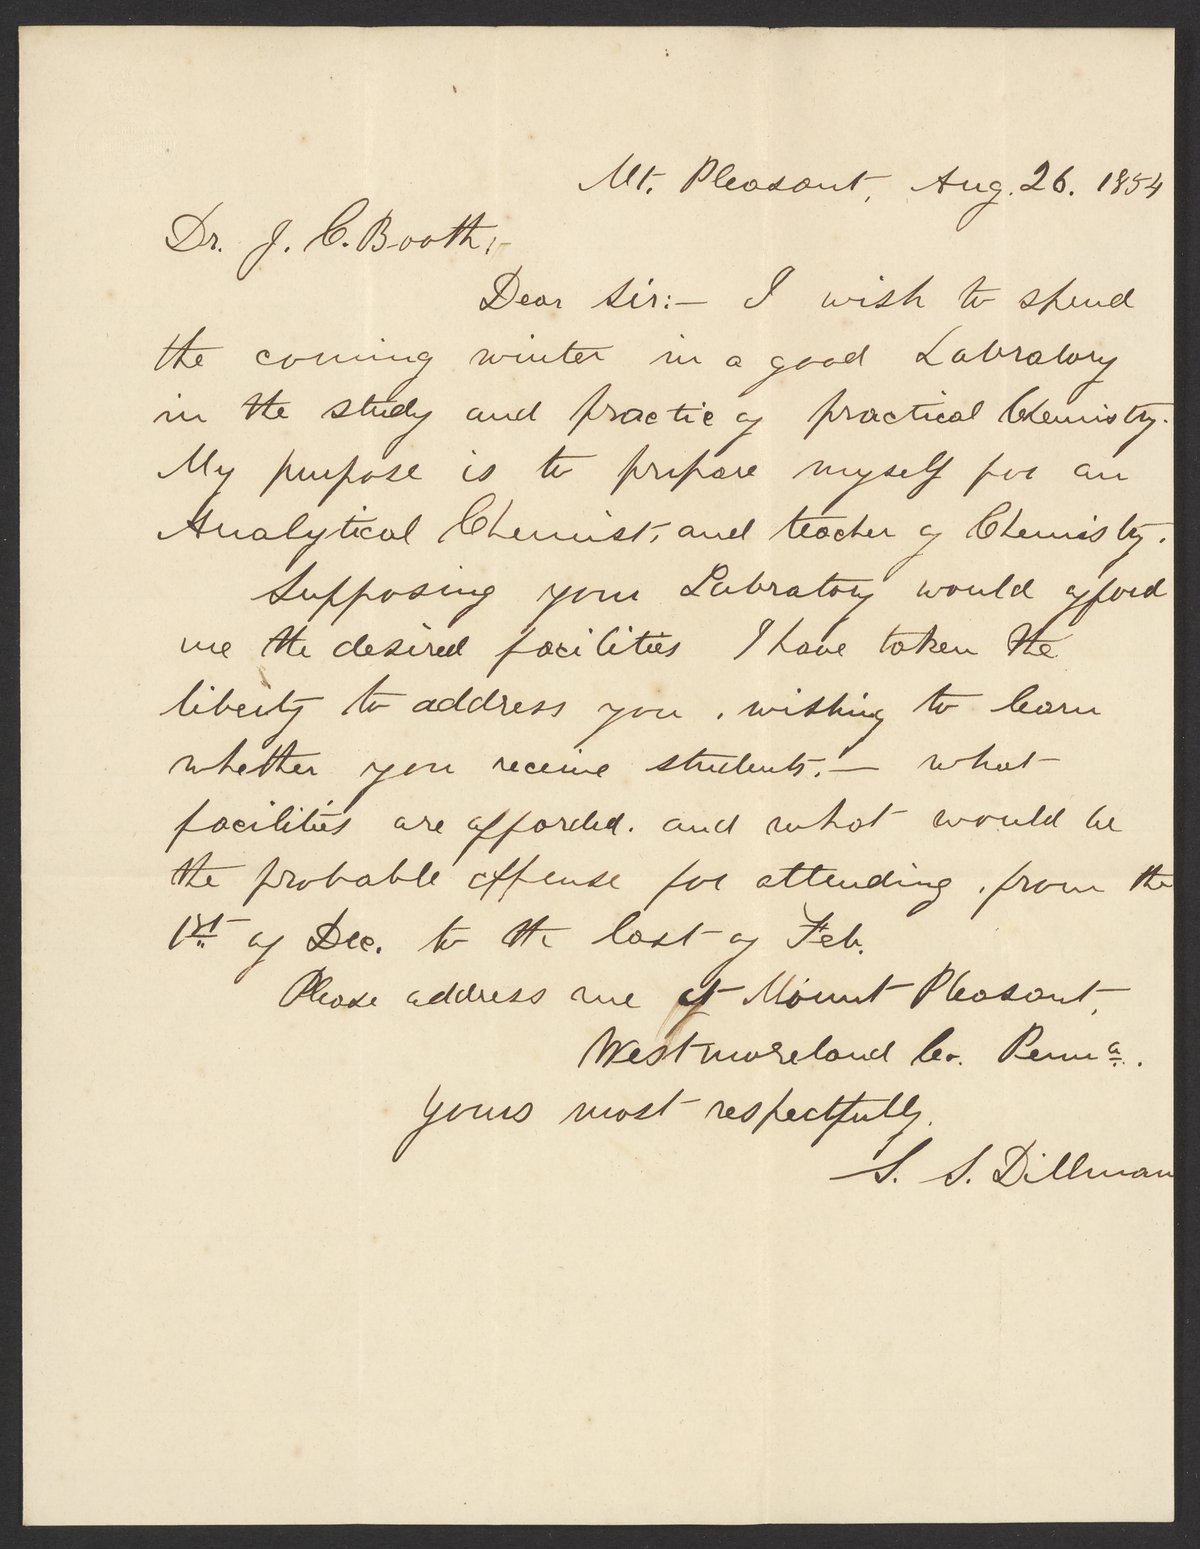 Mt. Pleasant, Aug. 26. 1854
Dr. J. C. Booth,
Dear Sir:— I wish to spend
the coming winter in a good Labratory
in the study and practic of practical Chemistry.
My purpose is to prepare myself for an
Analytical Chemist, and teacher of Chemisty.
Supposing your Labratory would afford
me the desired facilities I have taken the
liberty to address you, wishing to learn
whether you receive students.— what
facilities are afforded. and what would be
the probable expense for attending, from the
1st of Dec. to the last of Feb.
Please address me at Mount Pleasant,
Westmoreland Co. Penna.
Yours most respectfully.
S. S. Dillman